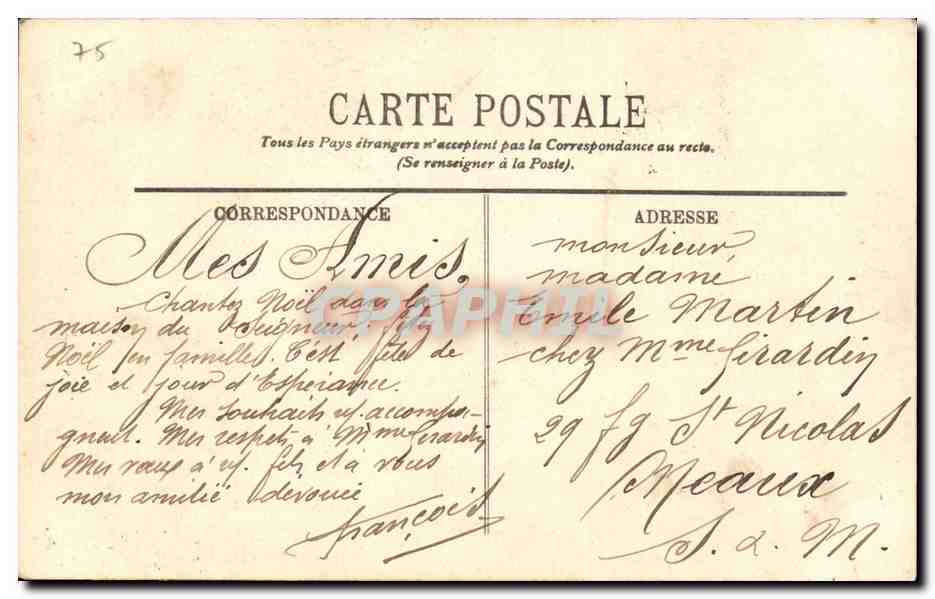 75
CARTE POSTALE
Tous les Pays étrangers n'acceptent pas la Correspondance au recto.
(Se renseigner à la Poste).
CORRESPONDANCE
Mes Amis,
Chantez Noël dans la
maison du Seigneur, fêtez
Noël en famille. C'est fête de
joie et jour d'Espérance.
Mes souhaits vs. accompa-
gnent. Mes respects à Mme Girardin
Mes vœux à vs. fils et à vous
mon amitié dévouée
François
ADRESSE
monsieur,
madame
Emile Martin
chez Mme Girardin
29 fg St Nicolas
Meaux
S. & M.
CPAPHIL